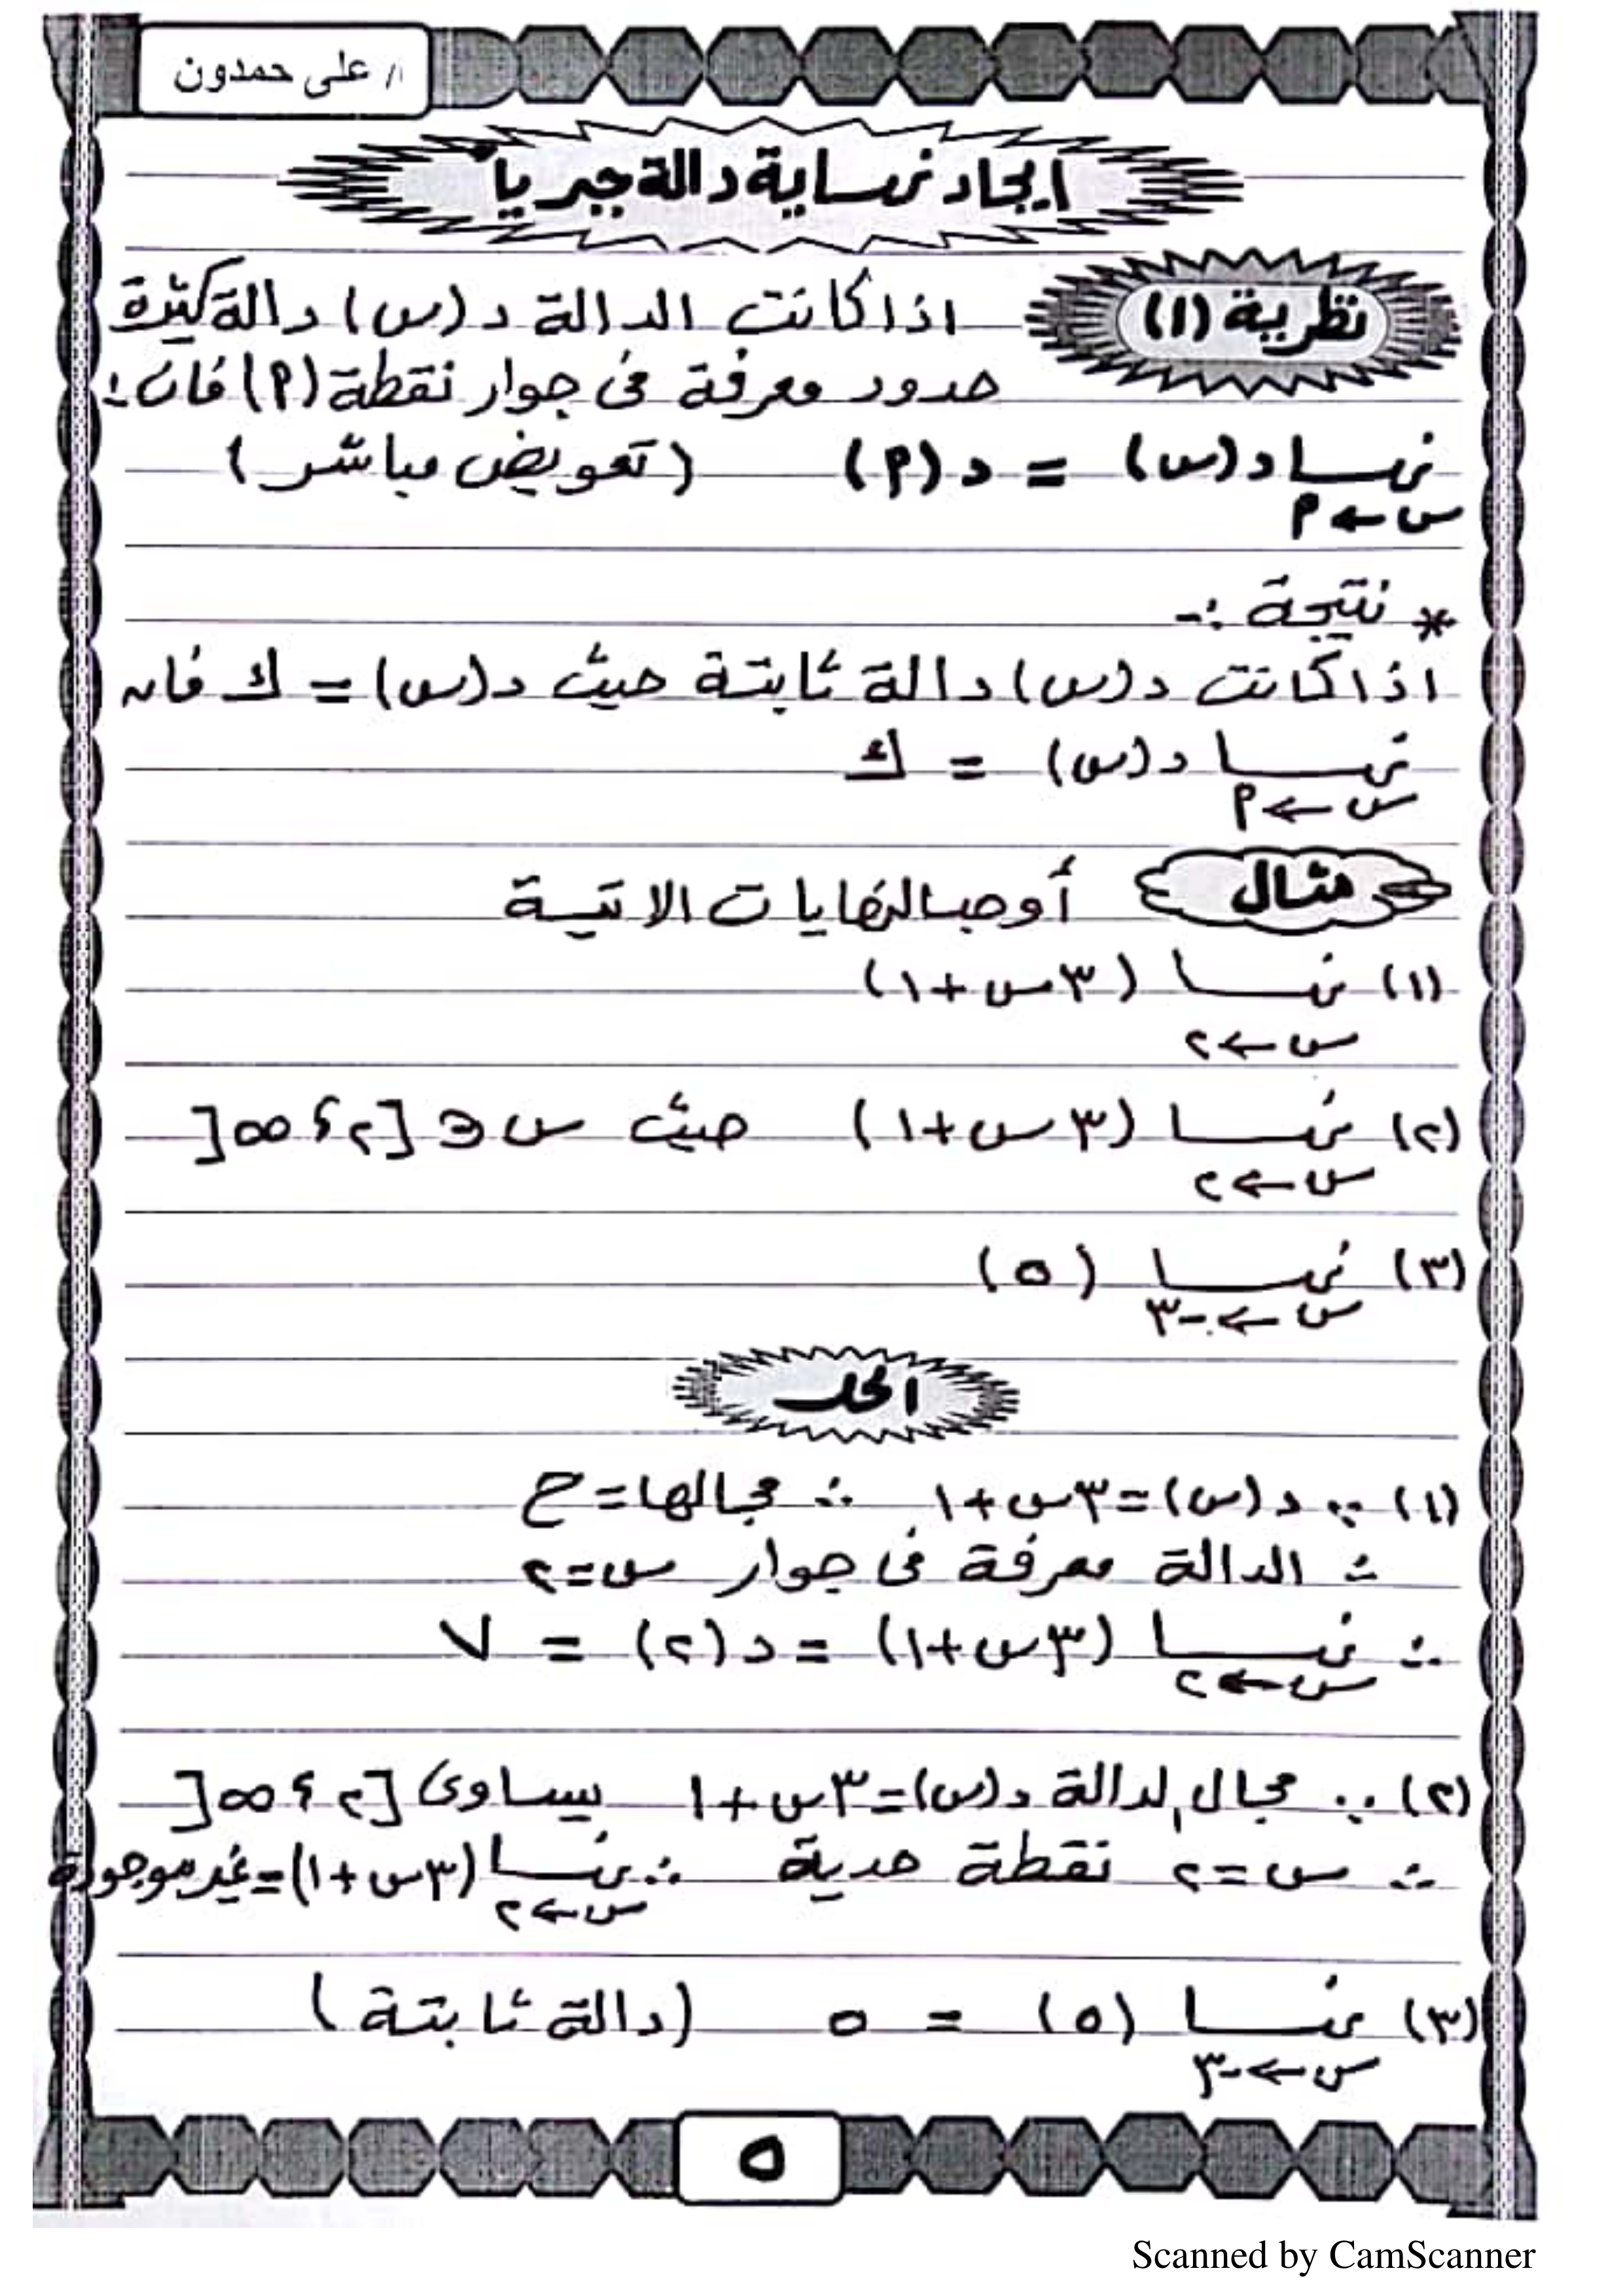 ا/ على حمدون
ايجاد نهاية دالة جبرياً
نظرية (١)
اذا كانت الدالة د (س) دالة كثيرة
حدود معرفة فى جوار نقطة (٩) فان:
نهـا د(س) = د (٩) (تعويض مباشر)
س ← ٩
* نتيجة :-
اذا كانت د (س) دالة ثابتة حيث د (س) = ك فان
نهـا د (س) = ك
س ← ٩
مثال
أوجد النهايات الاتية
(١) نهـا (٣س + ١)
س ← ٢
(٢) نهـا (٣س + ١) حيث س ∈ [٢ ، ∞[
س ← ٢
(٣) نهـا (٥)
س ← -٣
الحل
(١) ∵ د (س) = ٣س + ١ ∴ مجالها = ح
∴ الدالة معرفة فى جوار س = ٢
∴ نهـا (٣س + ١) = د (٢) = ٧
س ← ٢
(٢) ∵ مجال الدالة د (س) = ٣س + ١ يساوى [٢ ، ∞[
∴ س = ٢ نقطة حدية ∴ نهـا (٣س + ١) = غير موجودة
س ← ٢
(٣) نهـا (٥) = ٥ (دالة ثابتة)
س ← -٣
٥
Scanned by CamScanner